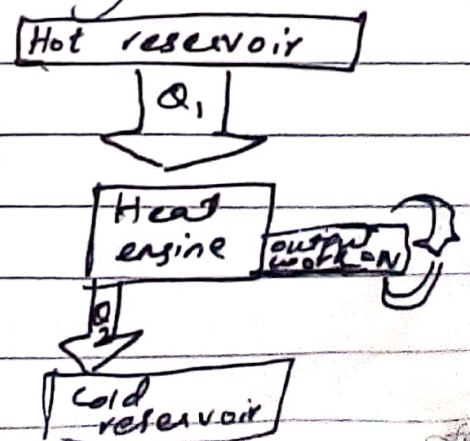 Hot reservoir
Q1
Heat
engine
output
work
Q2
Cold
reservoir